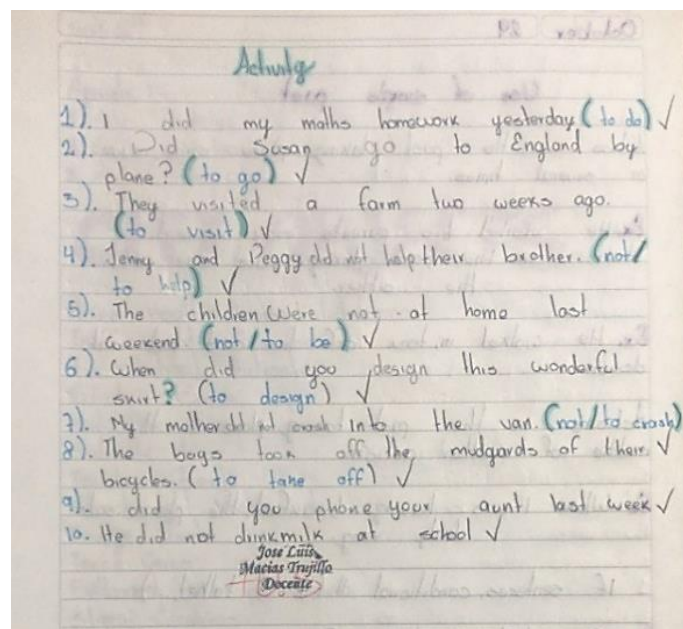 October 24
Activity
1). I did my maths homework yesterday (to do) ✓
2). Did Susan go to England by
plane? (to go) ✓
3). They visited a farm two weeks ago.
(to visit) ✓
4). Jenny and Peggy did not help their brother. (not/
to help) ✓
5). The children were not at home last
weekend (not / to be) ✓
6). When did you design this wonderful
skirt? (to design) ✓
7). My mother did not crash into the van. (not/to crash)
8). The boys took off the mudgards of their ✓
bicycles. (to take off) ✓
9). did you phone your aunt last week ✓
10. He did not drink milk at school ✓
Jose Luis
Macias Trujillo
Docente